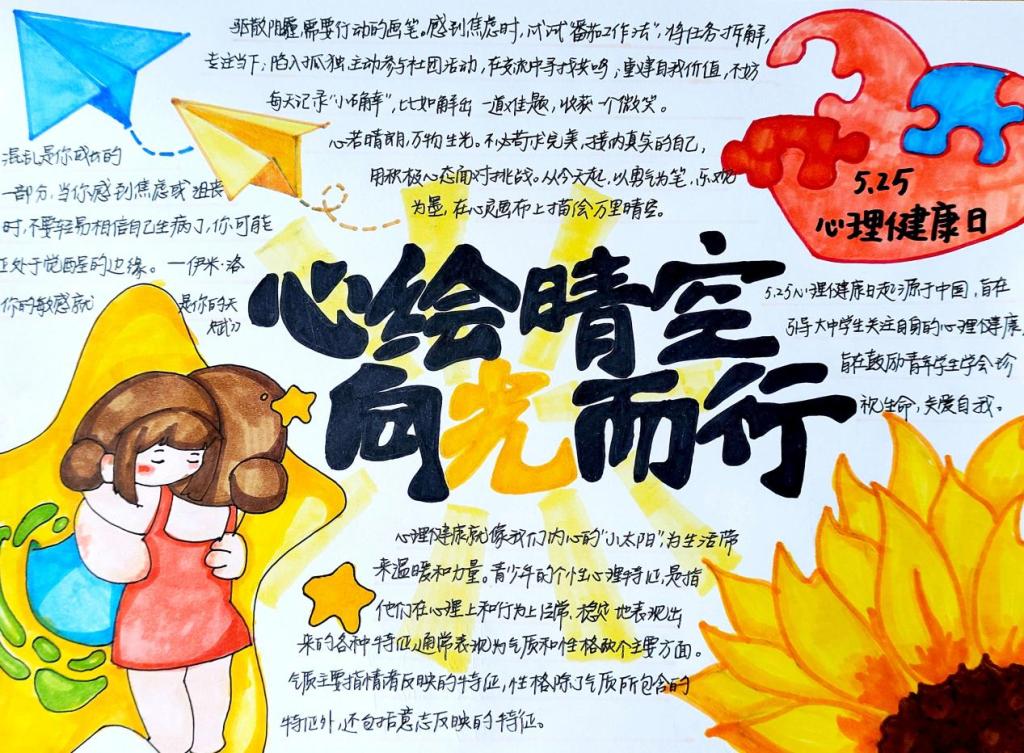 驱散阴霾,需要行动的画笔。感到焦虑时,试试“番茄工作法”,将任务拆解,
专注当下;陷入孤独,主动参与社团活动,在交流中寻找共鸣;重建自我价值,不妨
每天记录“小确幸”,比如解出一道难题,收获一个微笑。
心若晴朗,万物生光。不必苛求完美,接纳真实的自己,
用积极心态面对挑战。从今天起,以勇气为笔,乐观
为墨,在心灵画布上描绘万里晴空。
混乱是你成长的
一部分,当你感到焦虑或沮丧
时,不要轻易相信自己生病了,你可能
正处于觉醒的边缘。—伊米·洛
你的敏感就是你的天
赋》
5.25
心理健康日
心绘晴空
向光而行
5.25心理健康日起源于中国,旨在
引导大中学生关注自身的心理健康
旨在鼓励青年学生学会珍
视生命,关爱自我。
心理健康就像我们内心的“小太阳”,为生活带
来温暖和力量。青少年的个性心理特征,是指
他们在心理上和行为上经常、稳定地表现出
来的各种特征,通常表现为气质和性格两个主要方面。
气质主要指情绪反映的特征,性格除了气质所包含的
特征外,还包括意志反映的特征。